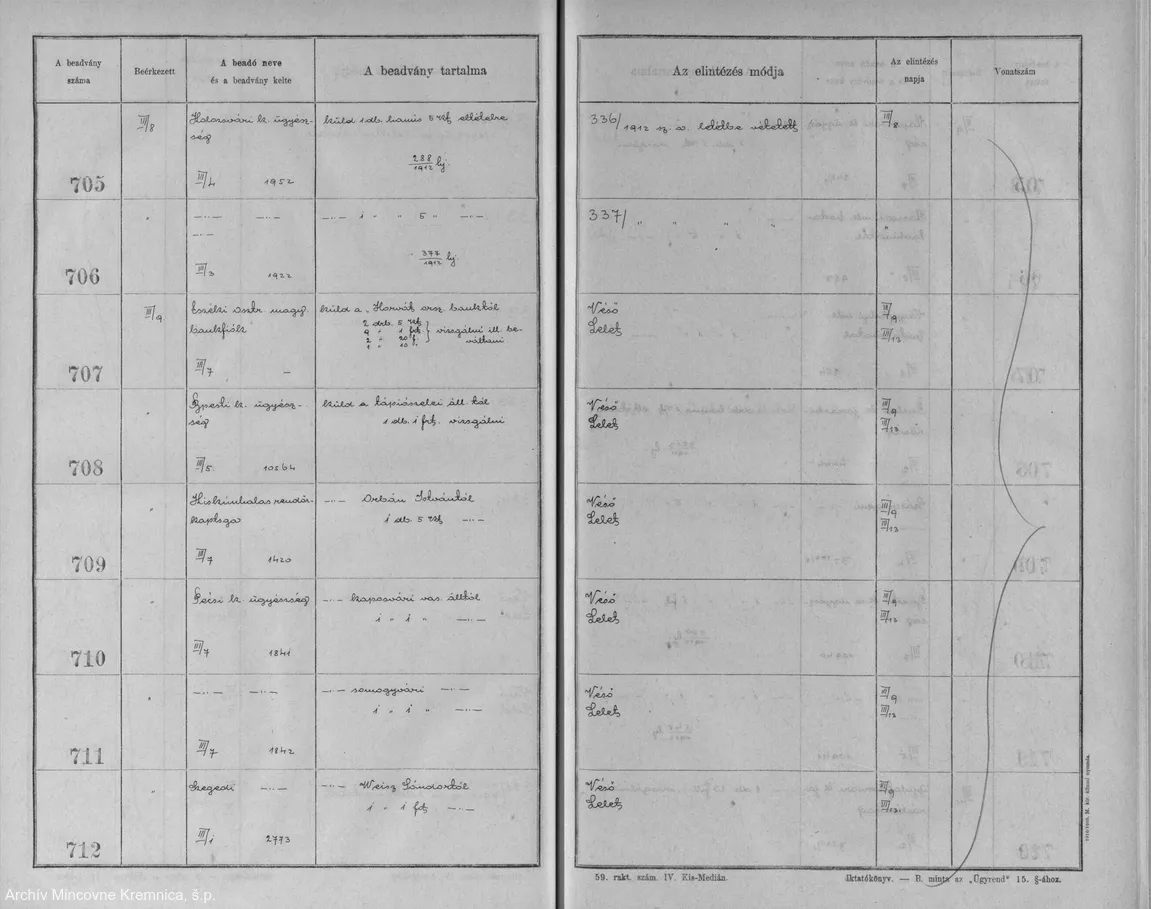 A beadvány
száma
Beérkezett
A beadó neve
és a beadvány kelte
A beadvány tartalma
Az elintézés módja
Az elintézés
napja
Vonatszám
705
III/8
Kolozsvári k. ügyész-
ség
III/4 1952
küld 1 db. hamis 5 K
288/1912 bj.
336/1912 sz. a. letétbe vétetett
III/8
706
"
–·– –·–
–·–
III/3 1922
–·– 1 " " 5 " –·–
377/1912 bj
337/ " " " "
"
707
III/9
Eszéki osztr. magy.
bankfiók
III/7 –
küld a "Horvát orsz. banktól
2 drb. 5 K
9 " 1 frt
2 " 20 f.
1 " 10 "
vizsgálni ill. be-
váltani
Véső
Lelet
III/9
III/13
708
"
Bpesti k. ügyész-
ség
III/5. 10564
küld a tápiószelei áll. tól
1 db. 1 frt. vizsgálni
Véső
Lelet
III/9
III/13
709
"
Kiskunhalas rendőr-
kapitsága
III/7 1420
–·– Orbán Istvántól
1 db. 5 K –·–
Véső
Lelet
III/9
III/13
710
"
Pécsi k. ügyészség
III/7 1841
–·– kaposvári vas. álltól
1 " 1 " –·–
Véső
Lelet
III/9
III/13
711
"
–·– –·–
III/7 1842
–·– somogyvári –·–
1 " 1 " –·–
Véső
Lelet
III/9
III/13
712
"
Szegedi –·–
III/1 2773
–·– Weisz Sándortól
1 " 1 frt –·–
Véső
Lelet
III/9
III/13.
59. rakt. szám. IV. Kis-Medián.
Iktatókönyv. — B. minta az „Ügyrend" 15. §-ához.
Archív Mincovne Kremnica, š.p.